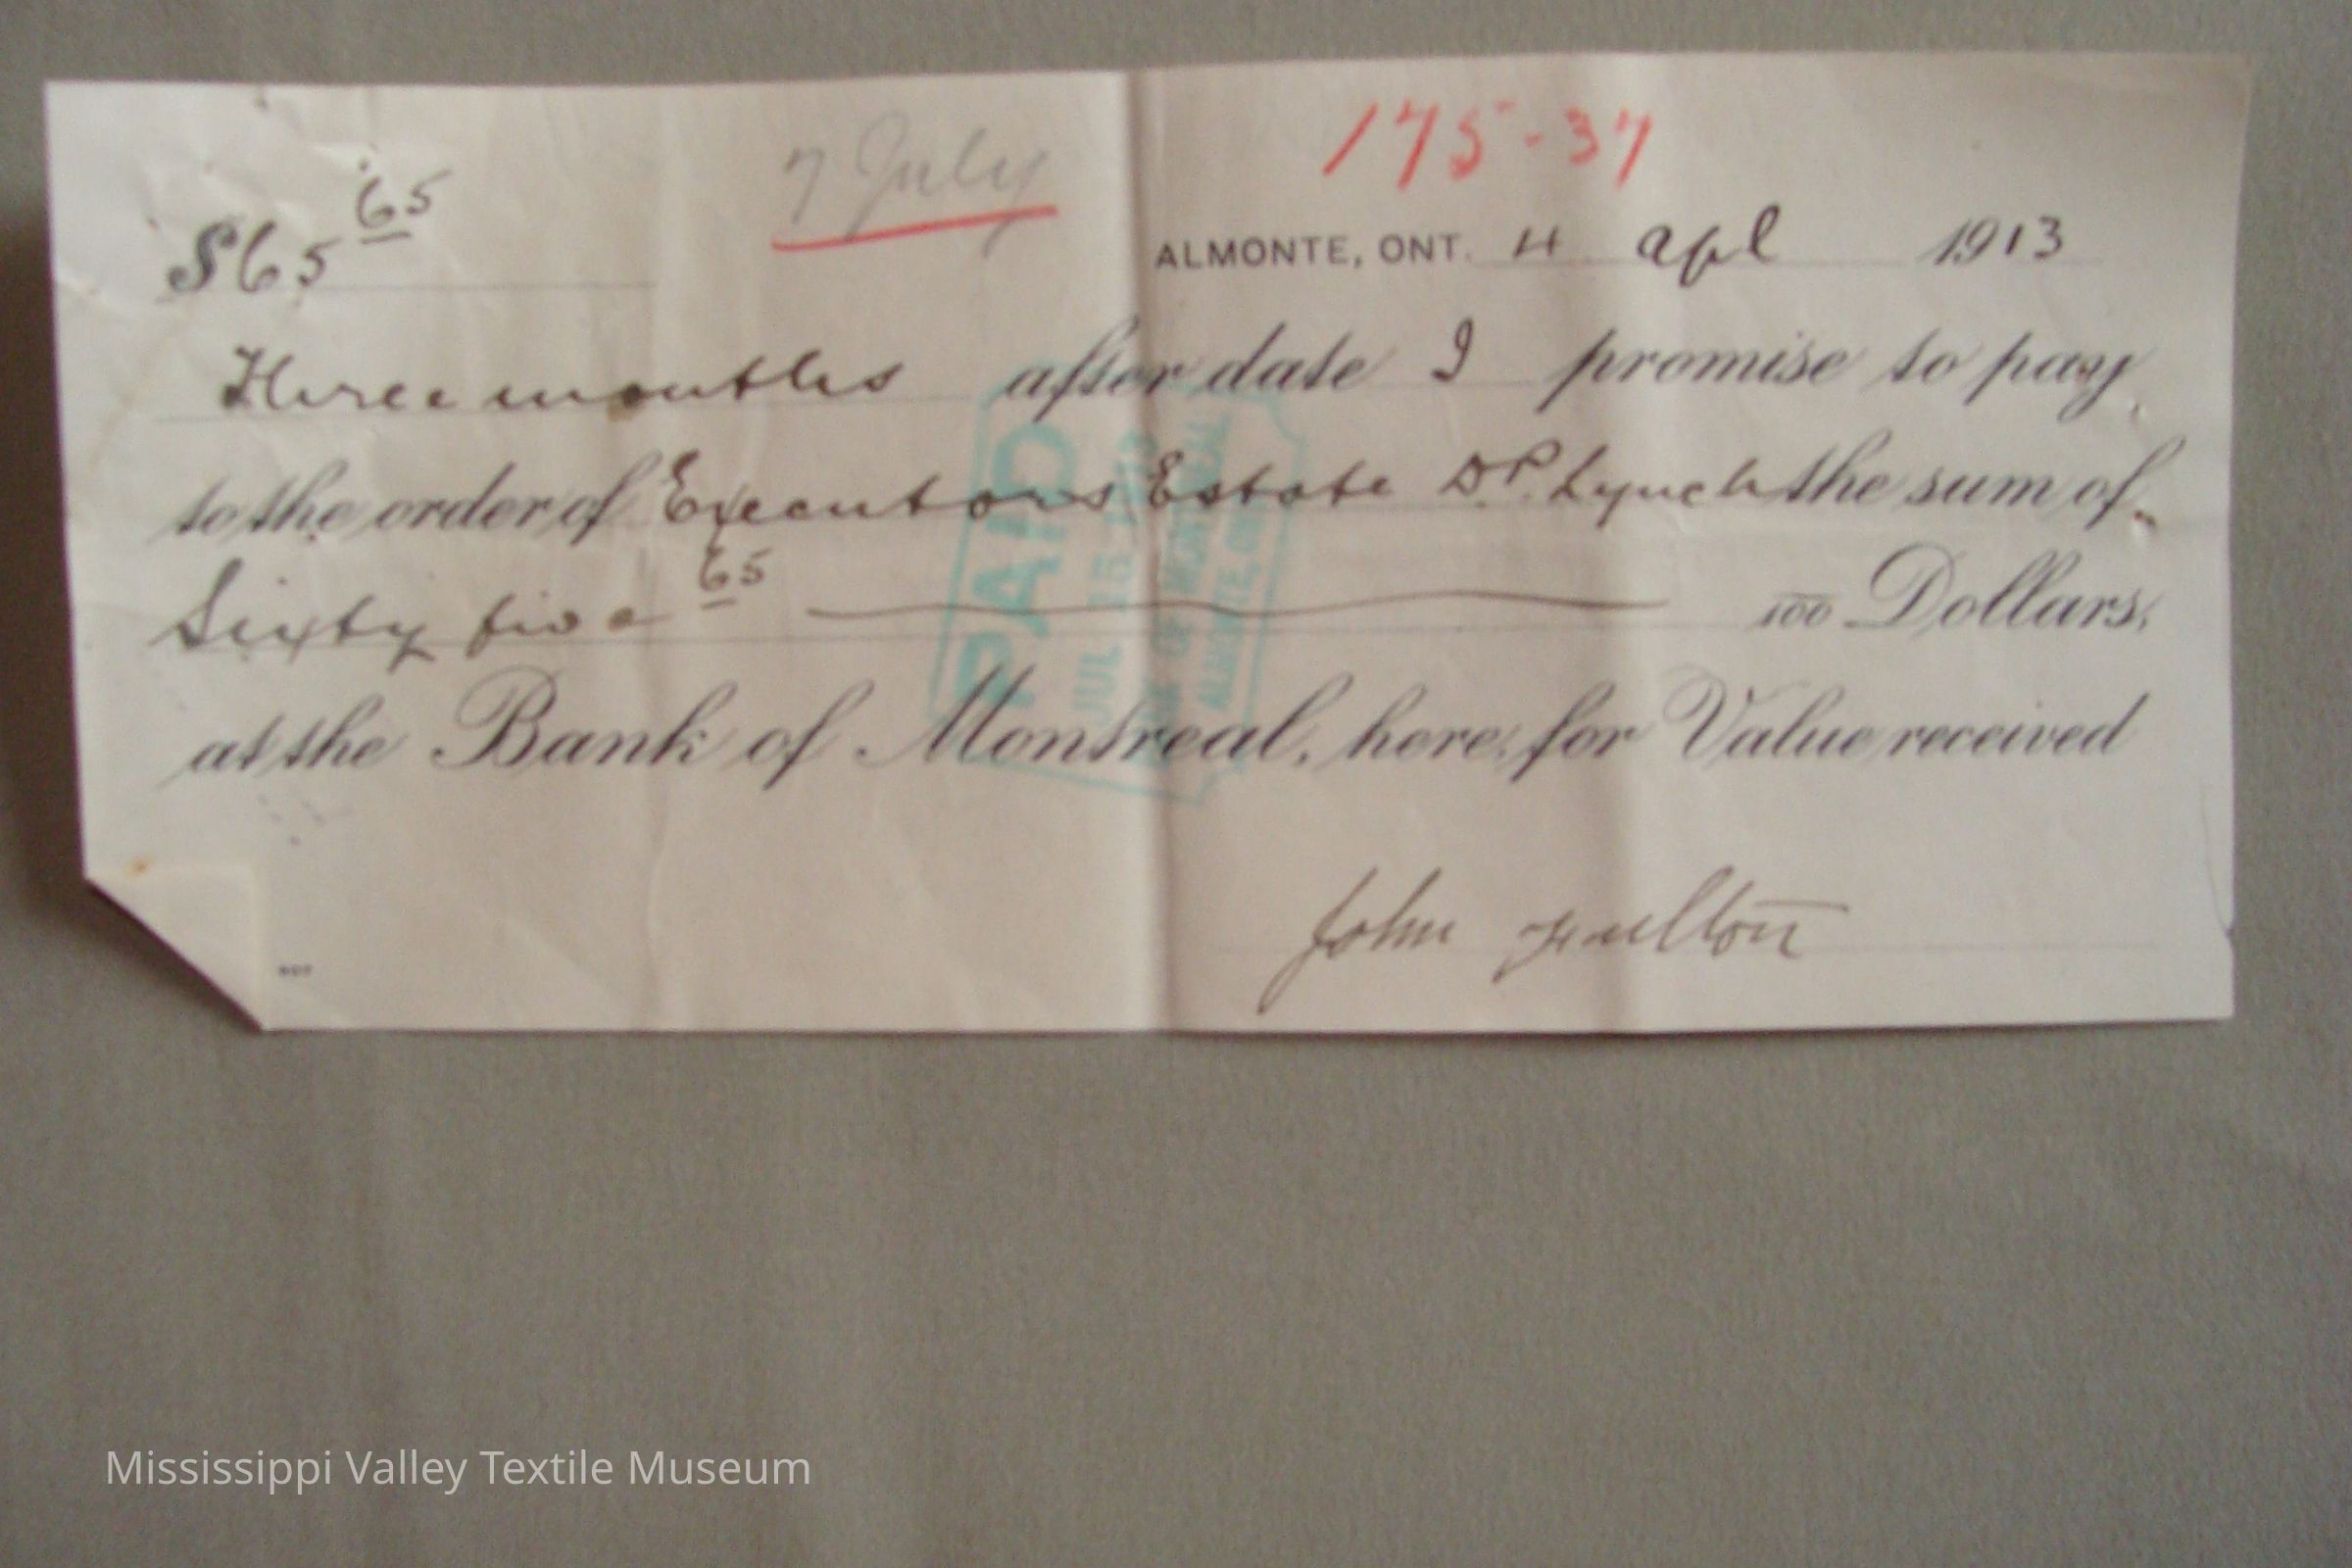 175-37
7 July
$65 65
ALMONTE, ONT. 4 apl 1913
Three months after date I promise to pay
to the order of Executors Estate D.P. Lynch the sum of
Sixty five 65 100 Dollars,
at the Bank of Montreal, here, for Value received
PAID
JUL 15
BANK OF MONTREAL
ALMONTE, ONT.
John Fulton
Mississippi Valley Textile Museum